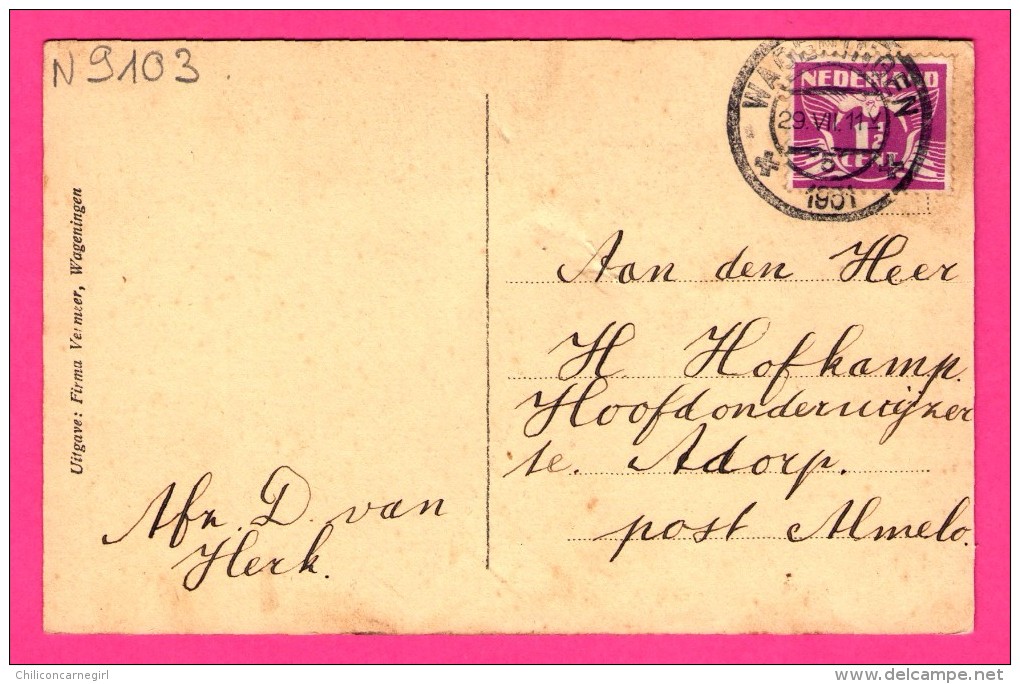 N 9103
WAGENINGEN
NEDERLAND
29.VII.11
1½
CENT
5
1931
Uitgave: Firma Vermeer, Wageningen
Aan den Heer
H. Hofkamp.
Hoofdonderwijzer
te. Adorp.
post Almelo.
Afz. D. van
Herk.
Chiliconcarnegirl
www.delcampe.net